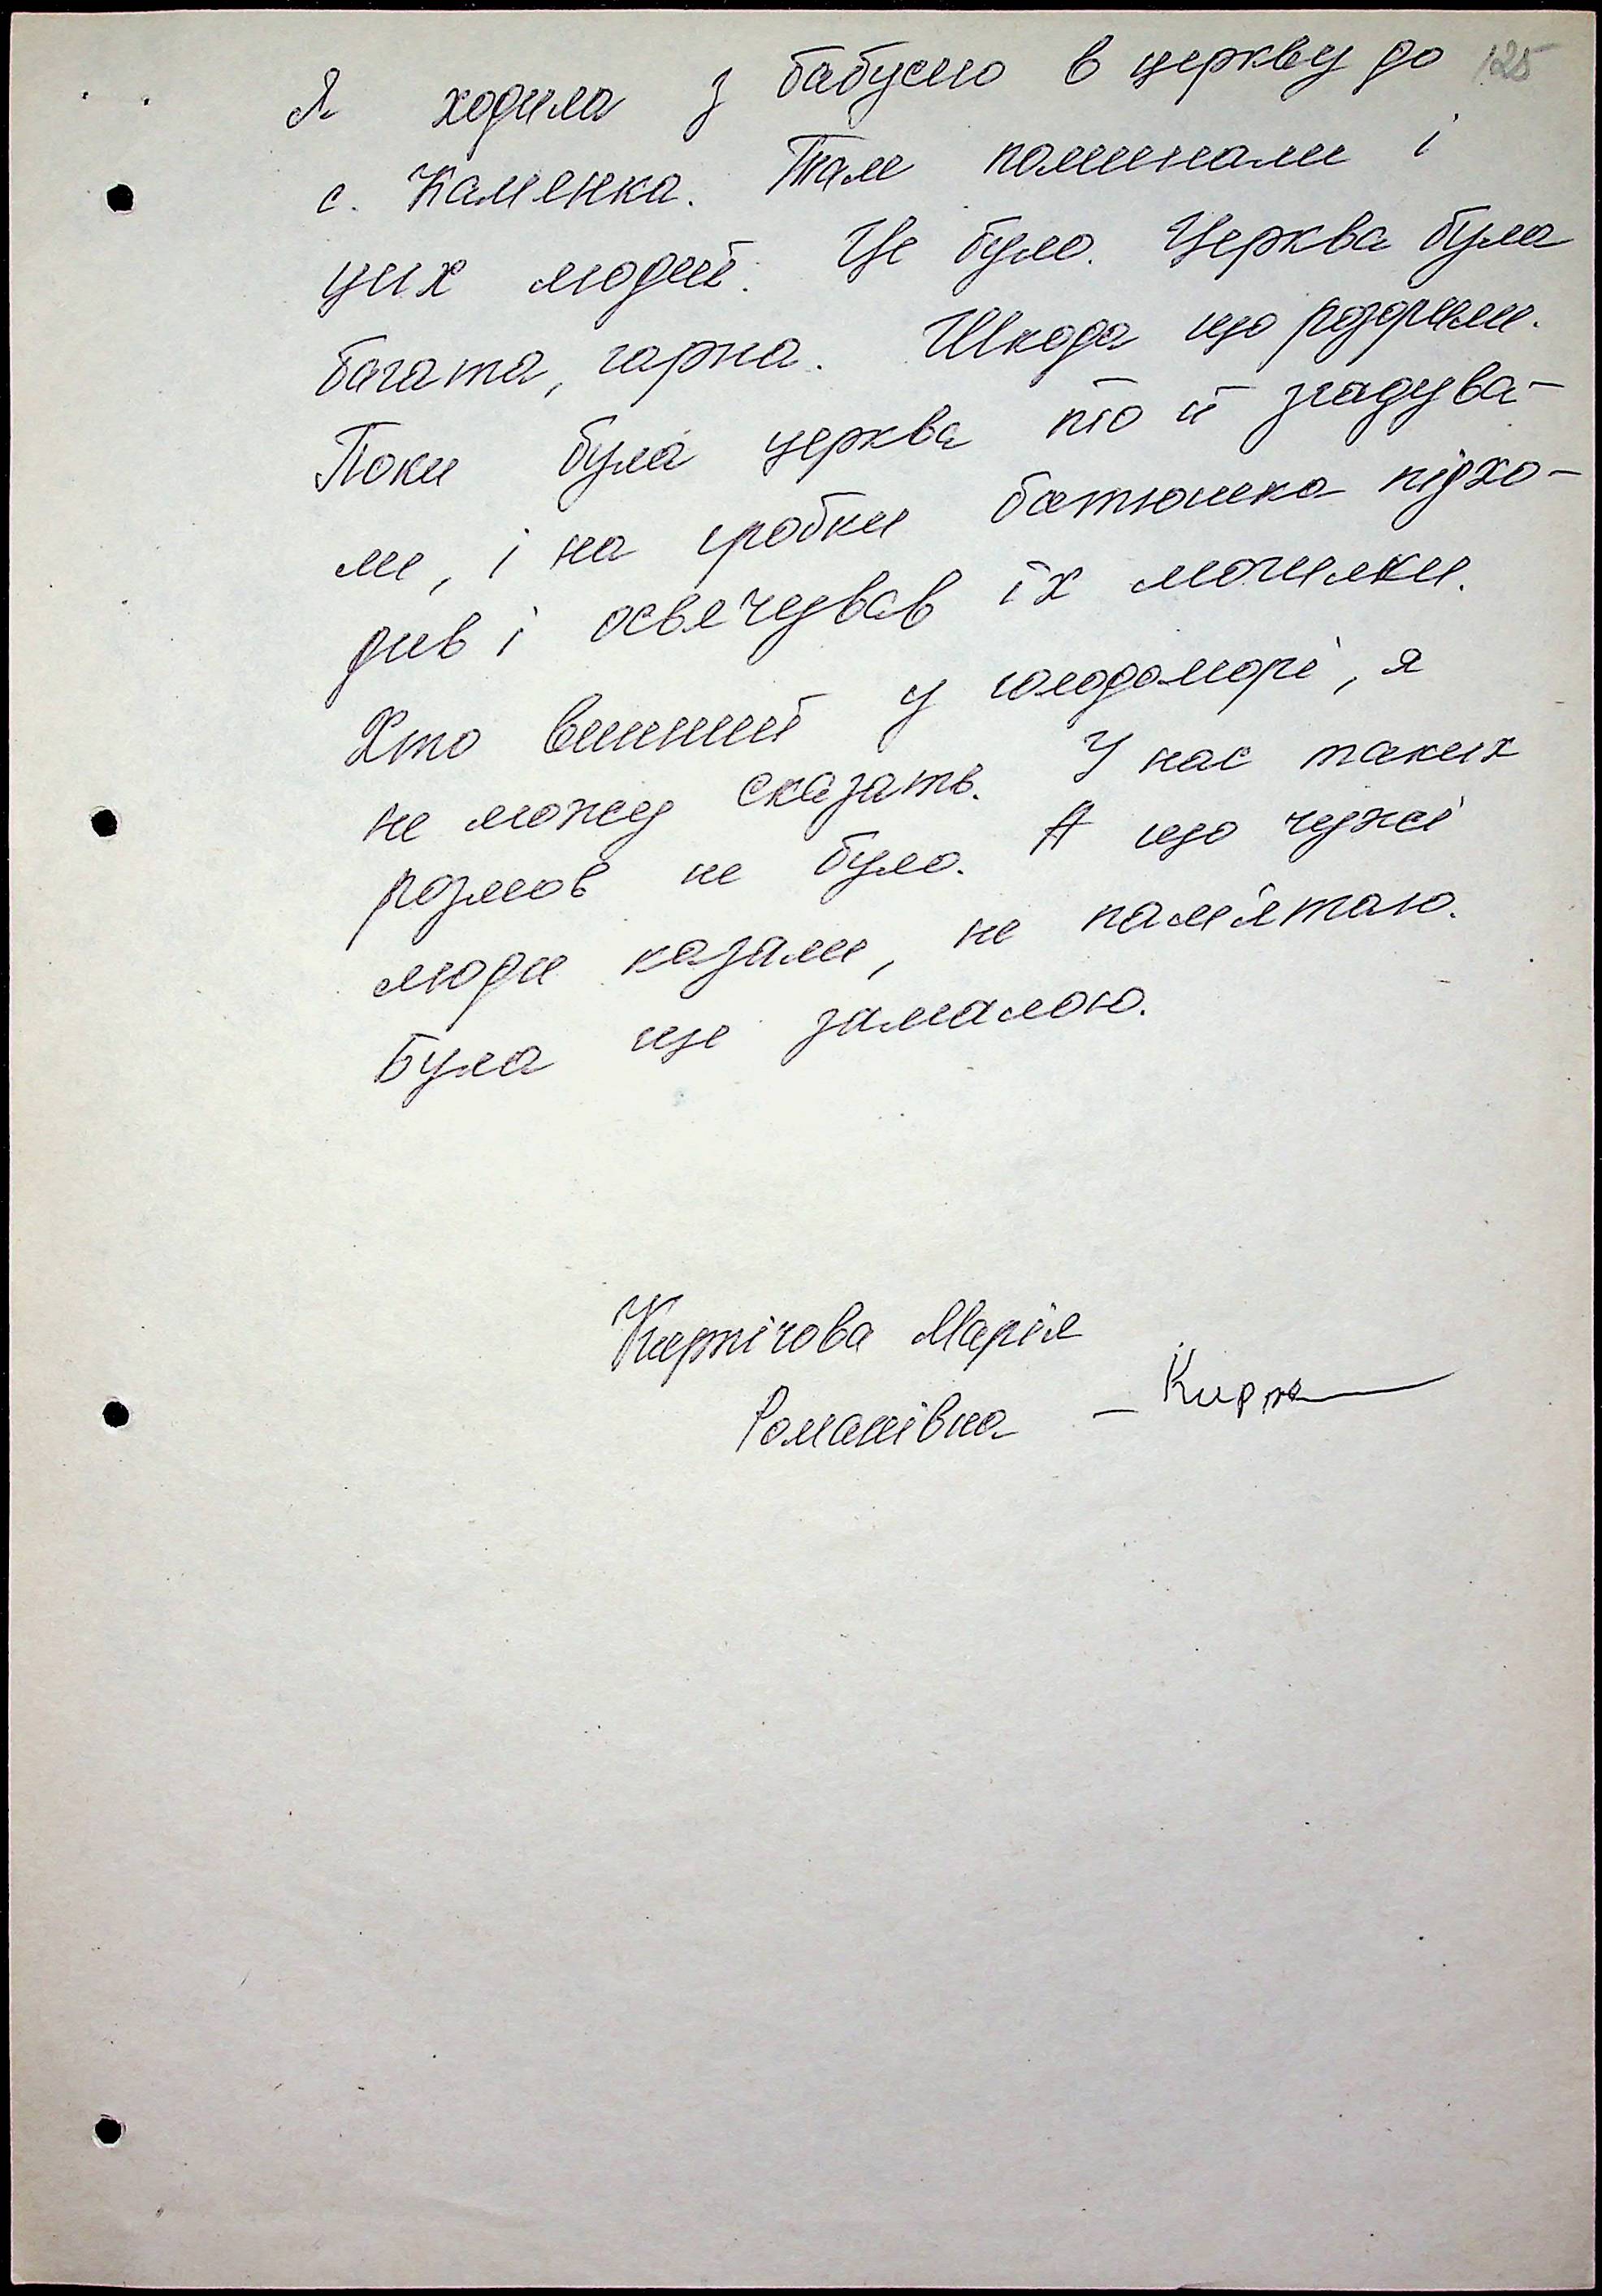 125
Я ходила з бабусею в церкву до
с. Кам'янка. Там поминали і
цих людей. Це було. Церква була
багата, гарна. Шкода що розорили.
Поки була церква то й згадува-
ли, і на гробки батюшка підхо-
див і освячував їх могилки.
Хто винний у голодоморі, я
не можу сказать. У нас таких
розмов не було. А що чужі
люди казали, не пам'ятаю.
Була ще замалою.
Кирпічова Марія
Романівна – Кирп